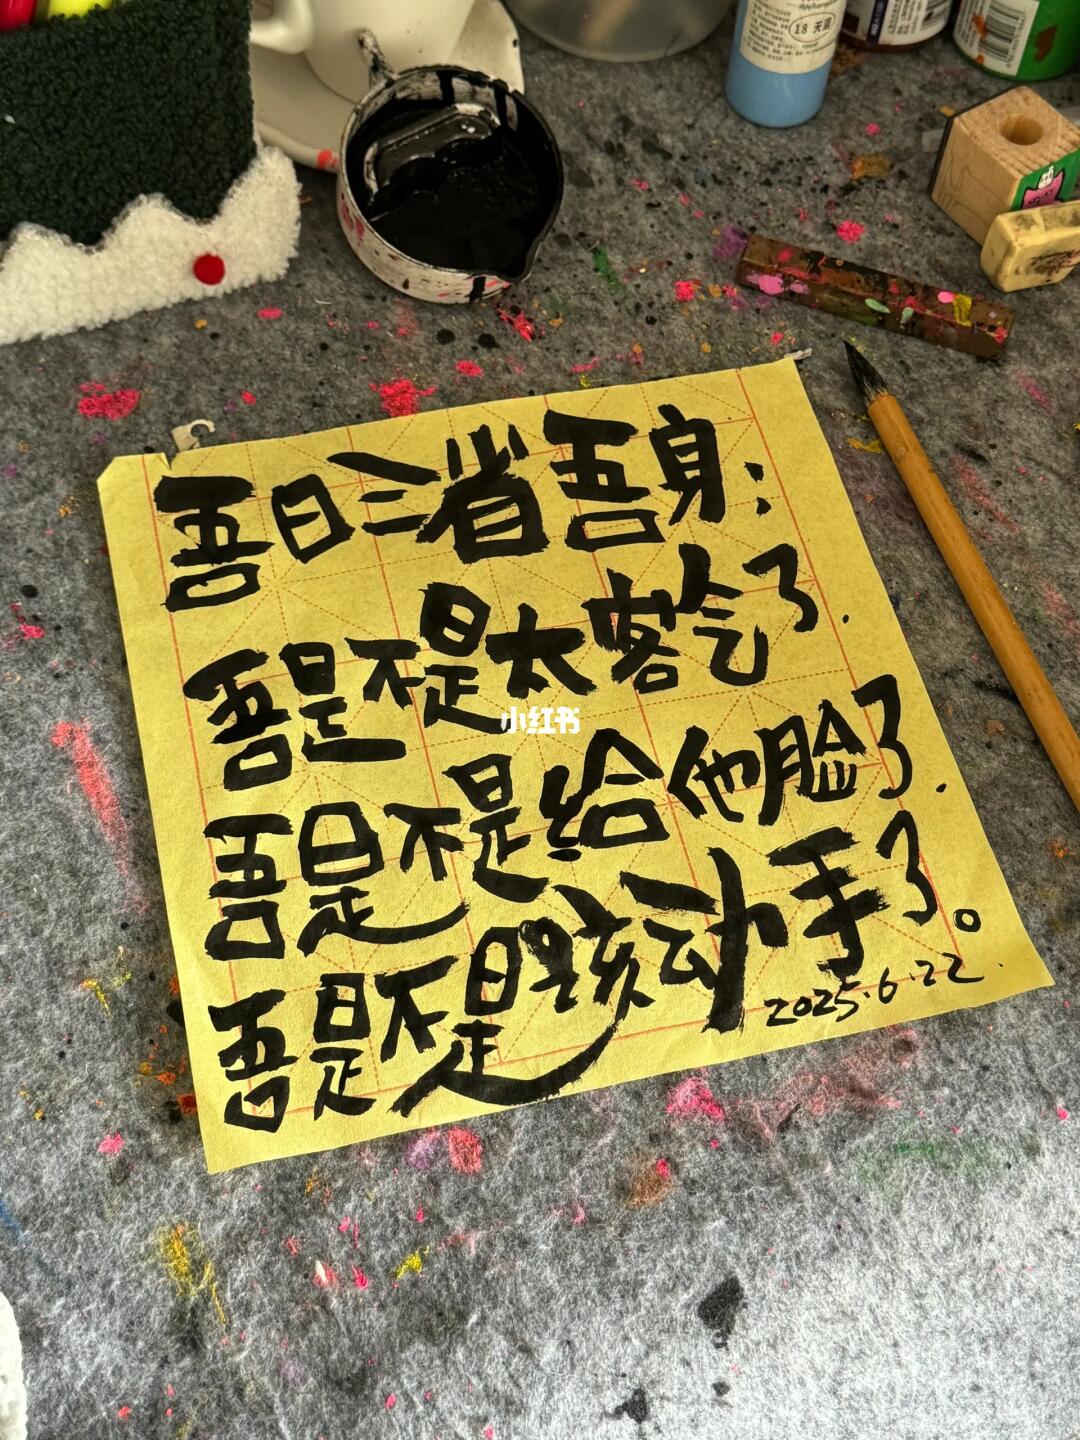 18 天蓝
吾日三省吾身:
吾是不是太客气了.
小红书
吾是不是给他脸了.
吾是不是该动手了。
2025.6.22.